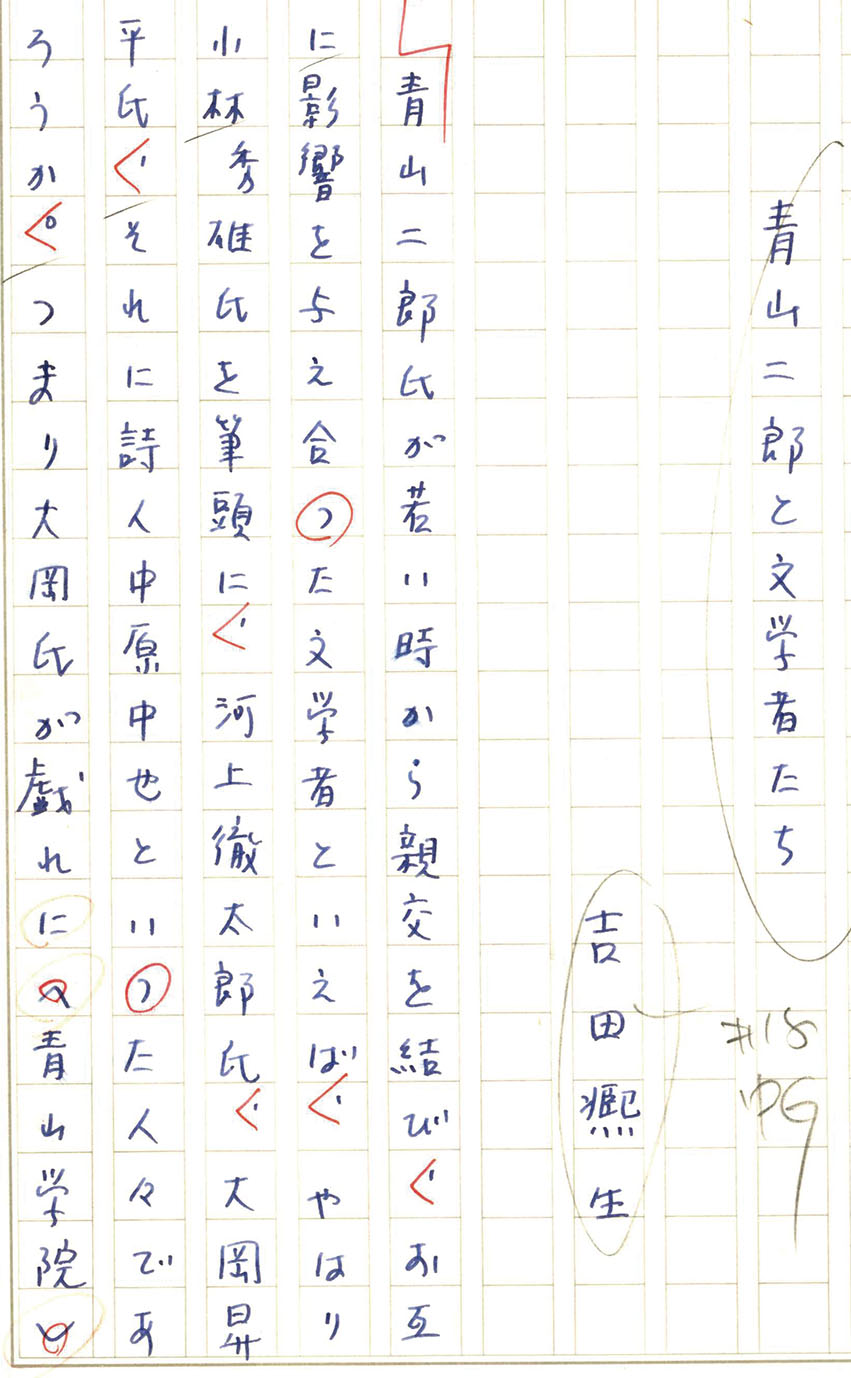 青山二郎と文学者たち
吉田凞生
#18
青山二郎氏が若い時から親交を結び、お互
に影響を与え合った文学者といえば、やはり
小林秀雄氏を筆頭に、河上徹太郎氏、大岡昇
平氏、それに詩人中原中也といった人々であ
ろうか。つまり大岡氏が戯れに〝青山学院〟